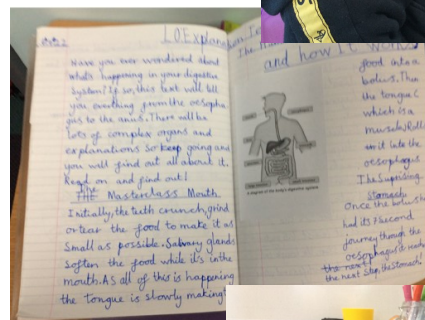 L.O. Explanation
and how it works
Have you ever wondered about
what's happening in your digestive
system? If so, this text will tell
you everthing from the oesopha-
gus to the anus. There will be
lots of complex organs and
explanations so keep going and
you will find out all about it.
Read on and find out!
The Masterclass Mouth.
Initially, the teeth crunch, grind
or tear the food to make it as
small as possible. Salivary glands
soften the food while it's in the
mouth. As all of this is happening
the tongue is slowly making
food into a
bolus. The
the tongue
which is a
muscle, Rolls
it into the
oesophagus
The Suprising
Stomach
Once the bolus
had its 7 second
journey through the
oesophagus it
the next
the next stop, the Stomach!